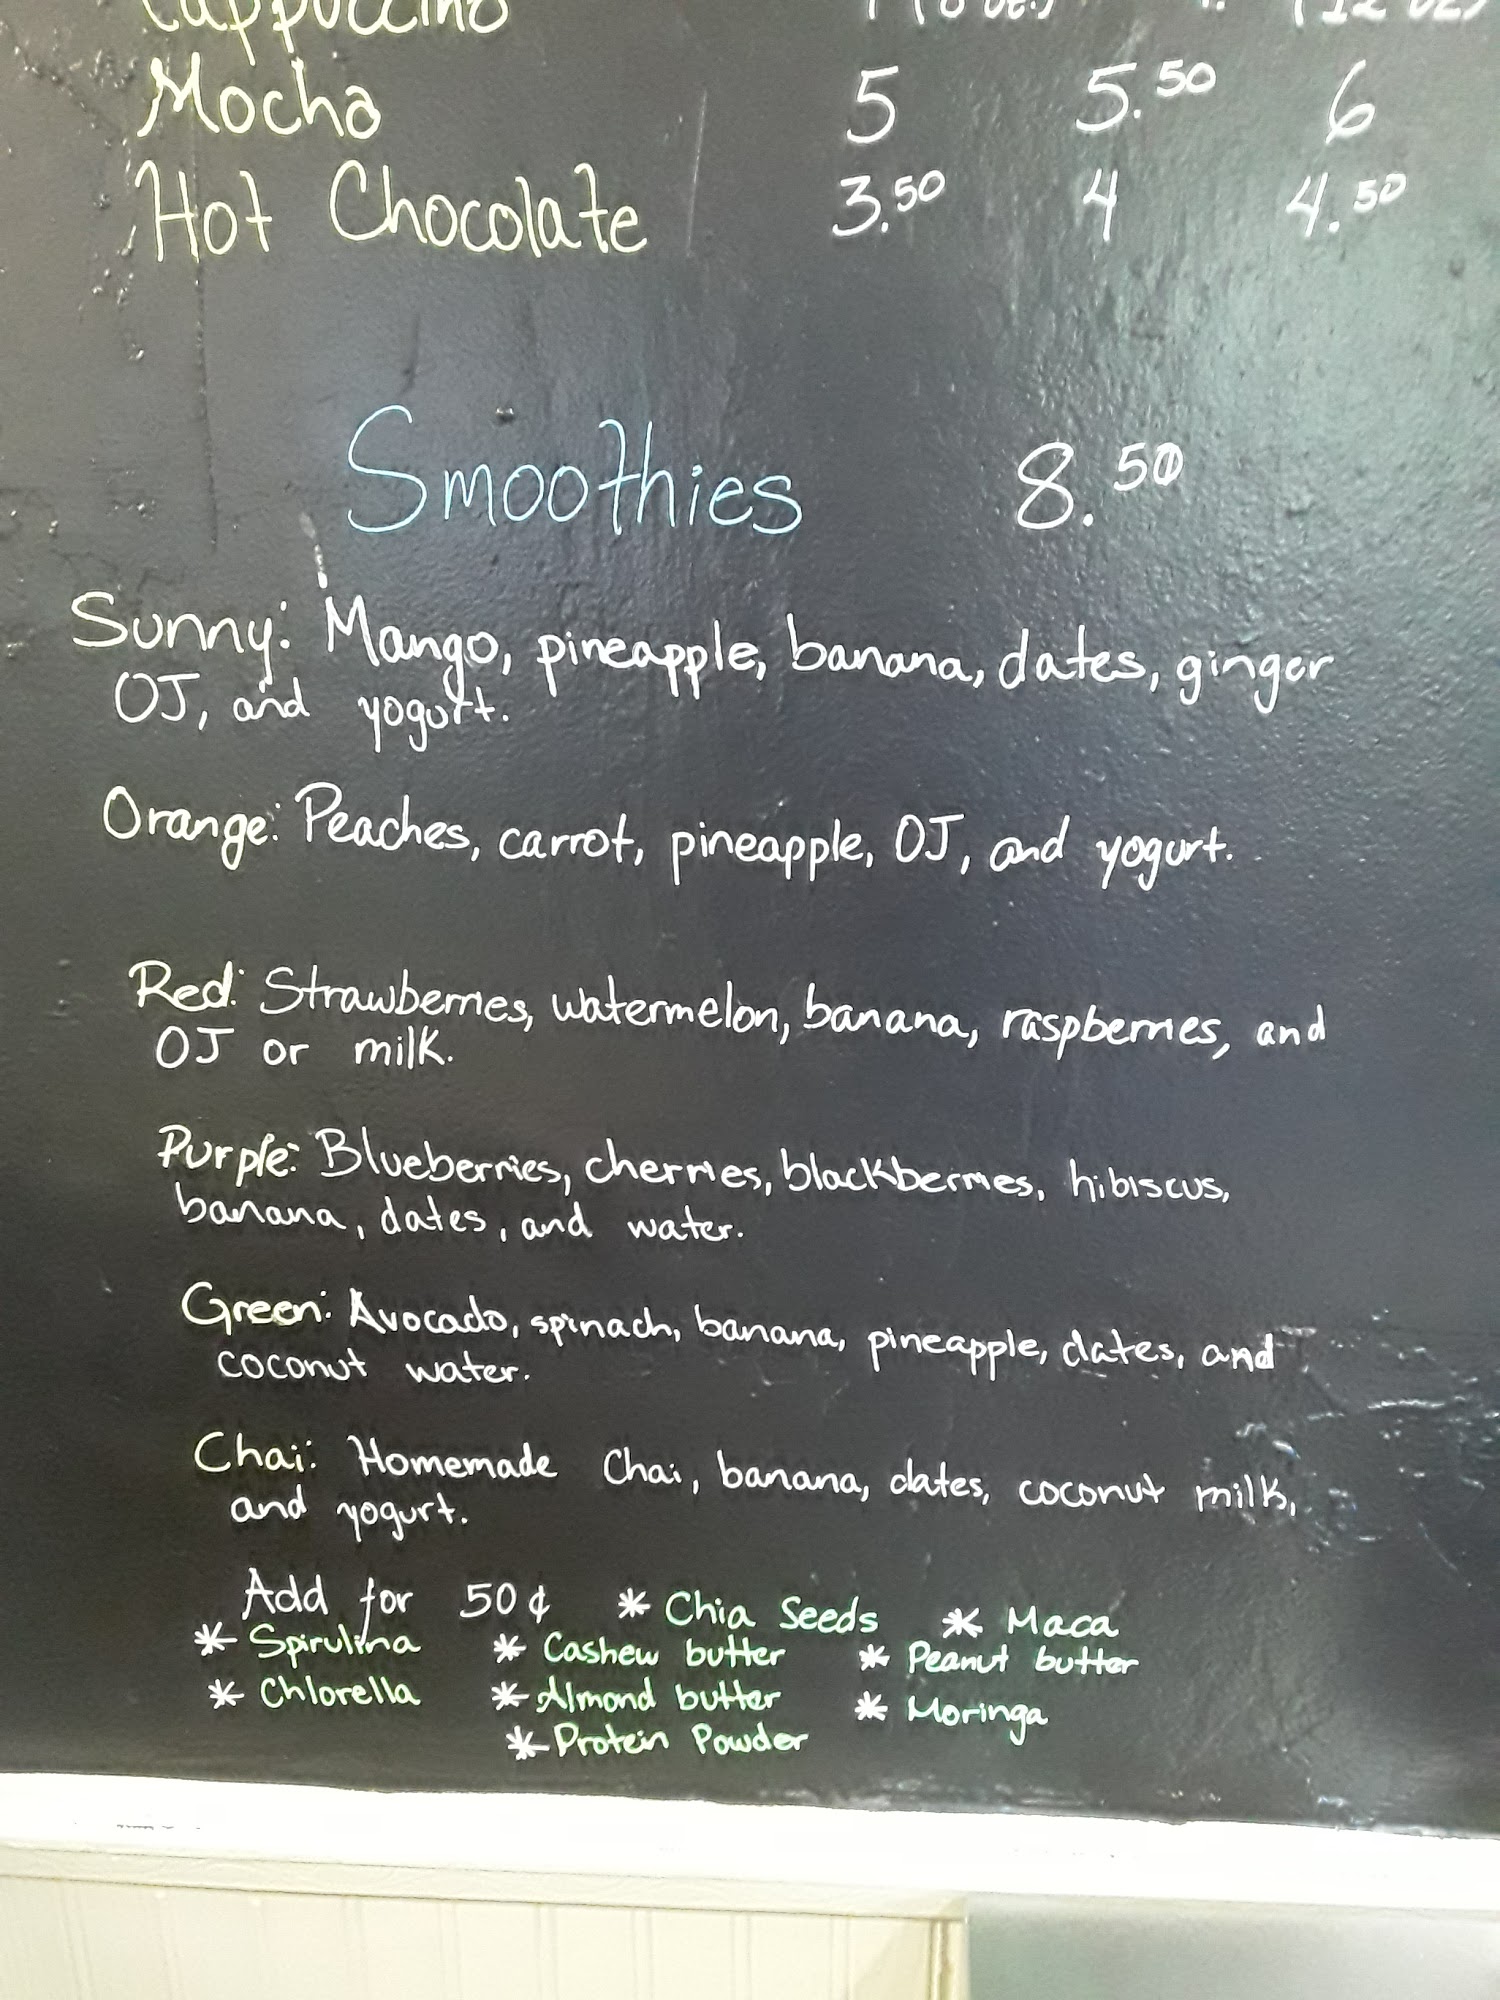 Cappuccino
Mocha 5 5.50 6
Hot Chocolate 3.50 4 4.50
Smoothies 8.50
Sunny: Mango, pineapple, banana, dates, ginger
OJ, and yogurt.
Orange: Peaches, carrot, pineapple, OJ, and yogurt.
Red: Strawberries, watermelon, banana, raspberries, and
OJ or milk.
Purple: Blueberries, cherries, blackberries, hibiscus,
banana, dates, and water.
Green: Avocado, spinach, banana, pineapple, dates, and
coconut water.
Chai: Homemade Chai, banana, dates, coconut milk,
and yogurt.
Add for 50¢ * Chia Seeds * Maca
* Spirulina * Cashew butter * Peanut butter
* Chlorella * Almond butter * Moringa
* Protein Powder